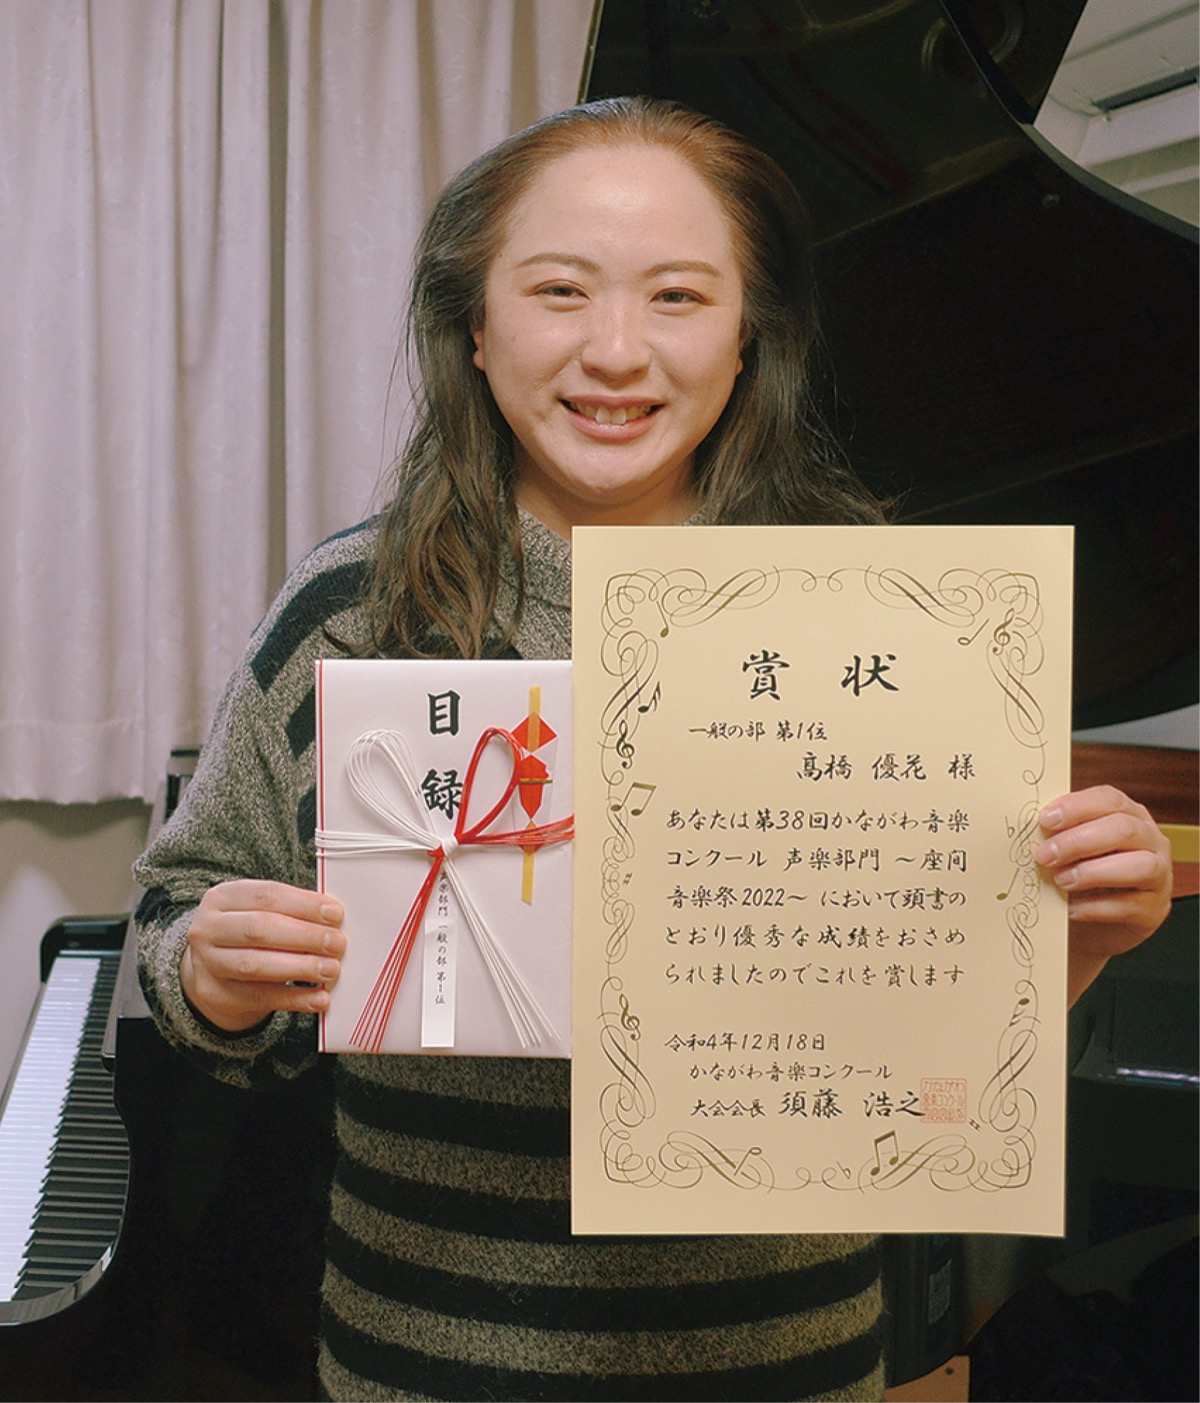 目録
声楽部門 一般の部 第1位
賞 状
一般の部 第1位
髙橋 優花 様
あなたは第38回かながわ音楽
コンクール 声楽部門 〜座間
音楽祭2022〜 において頭書の
とおり優秀な成績をおさめ
られましたのでこれを賞します
令和4年12月18日
かながわ音楽コンクール
大会会長 須藤 浩之